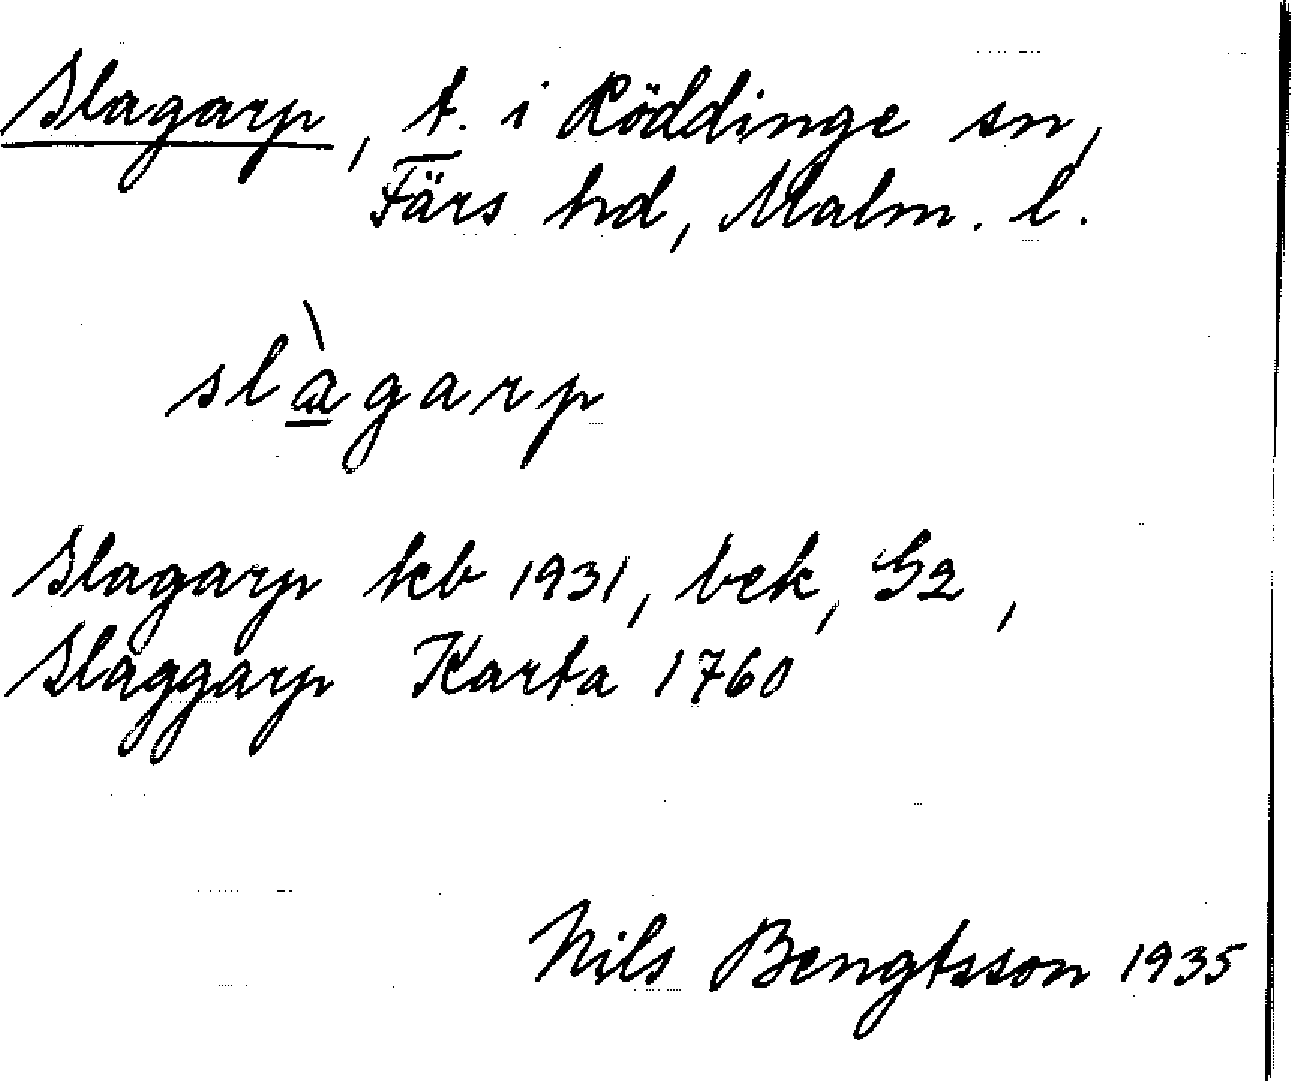 Slagarp, t. i Röddinge sn,
Färs hd, Malm. l.
slàgarp
Slagarp kb 1931, bek, G2,
Slåggarp Karta 1760
Nils Bengtsson 1935